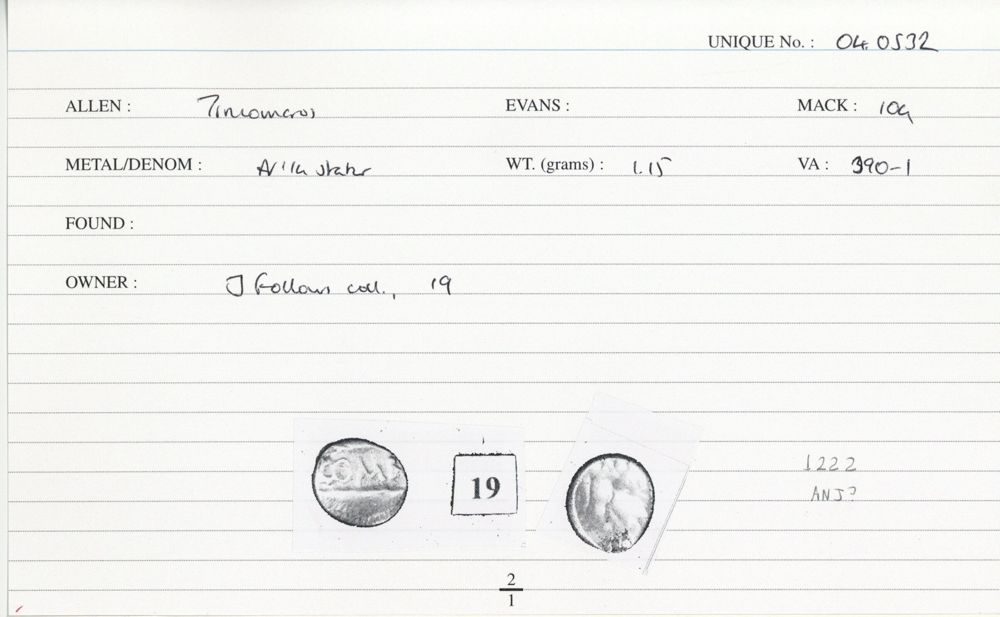 UNIQUE No. : 04.0532
ALLEN : Tincomarus EVANS : MACK : 104
METAL/DENOM : AV 1/4 stater WT. (grams) : 1.15 VA : 390-1
FOUND :
OWNER : J Follows coll., 19
19
1222
ANJ?
2
1